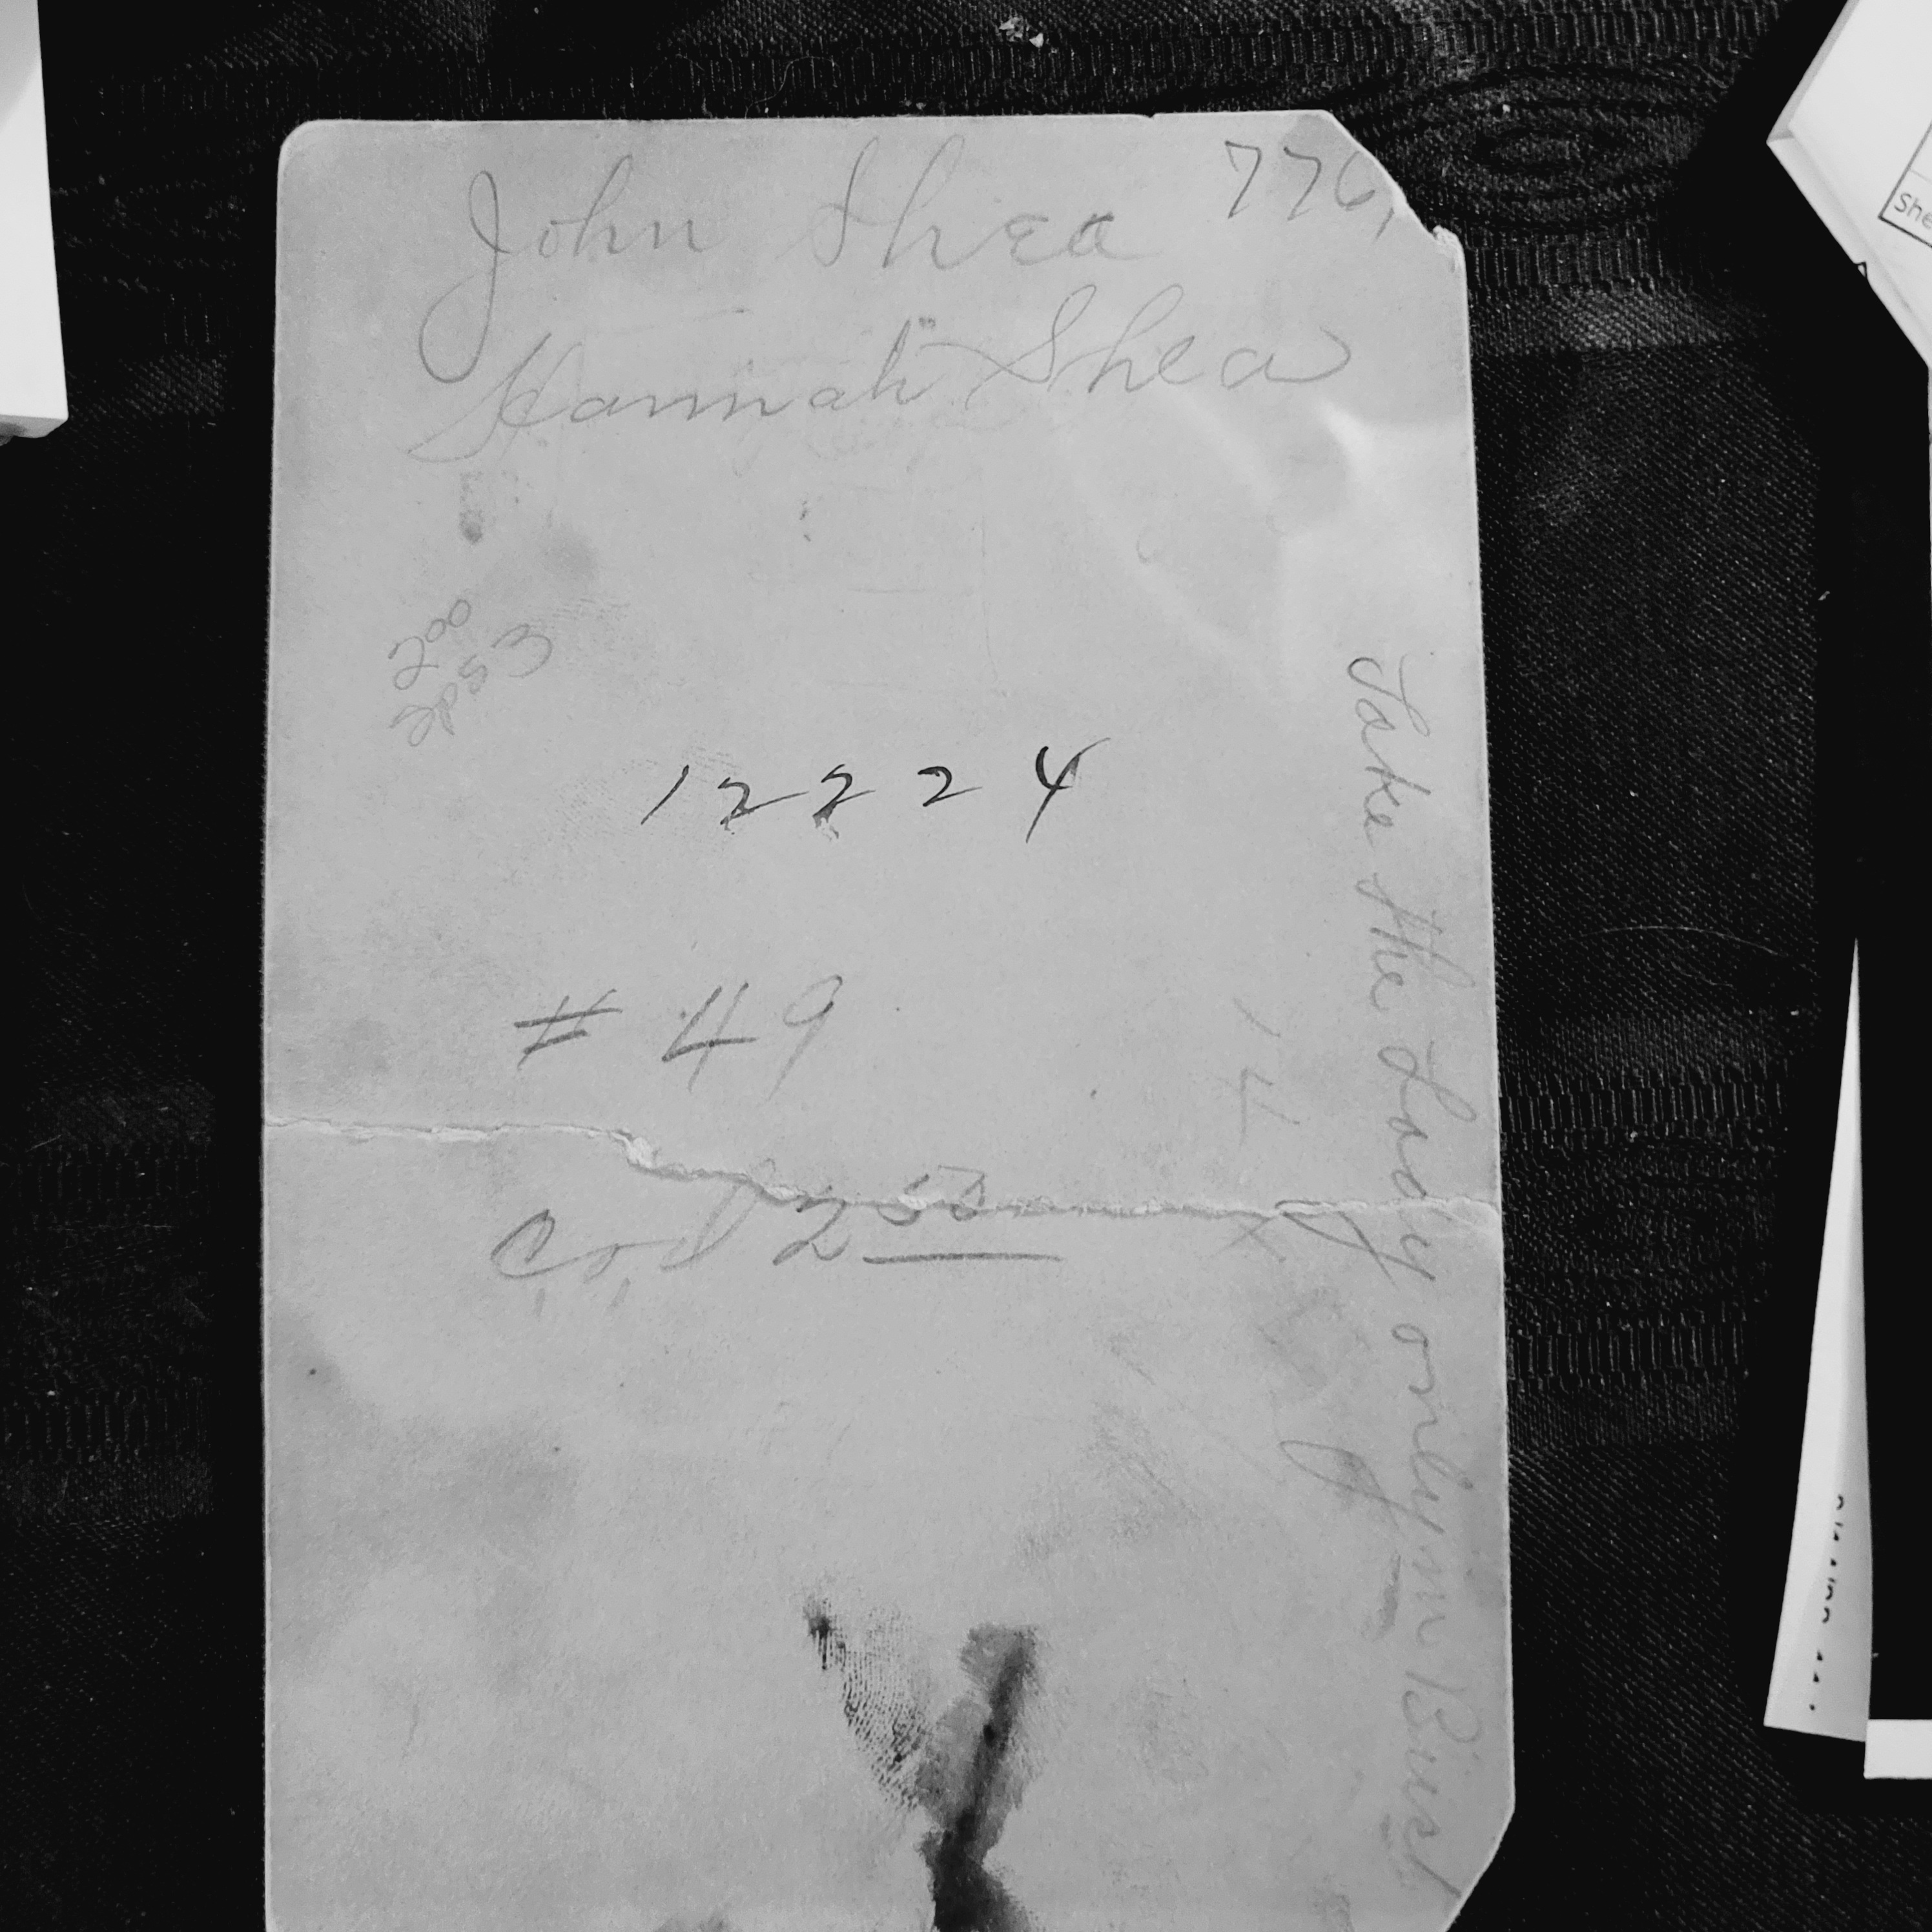 John Shea 776,
Hannah Shea
2 00
12224
# 49
C.O.D 2 50
Take the Lady only in Bust
she